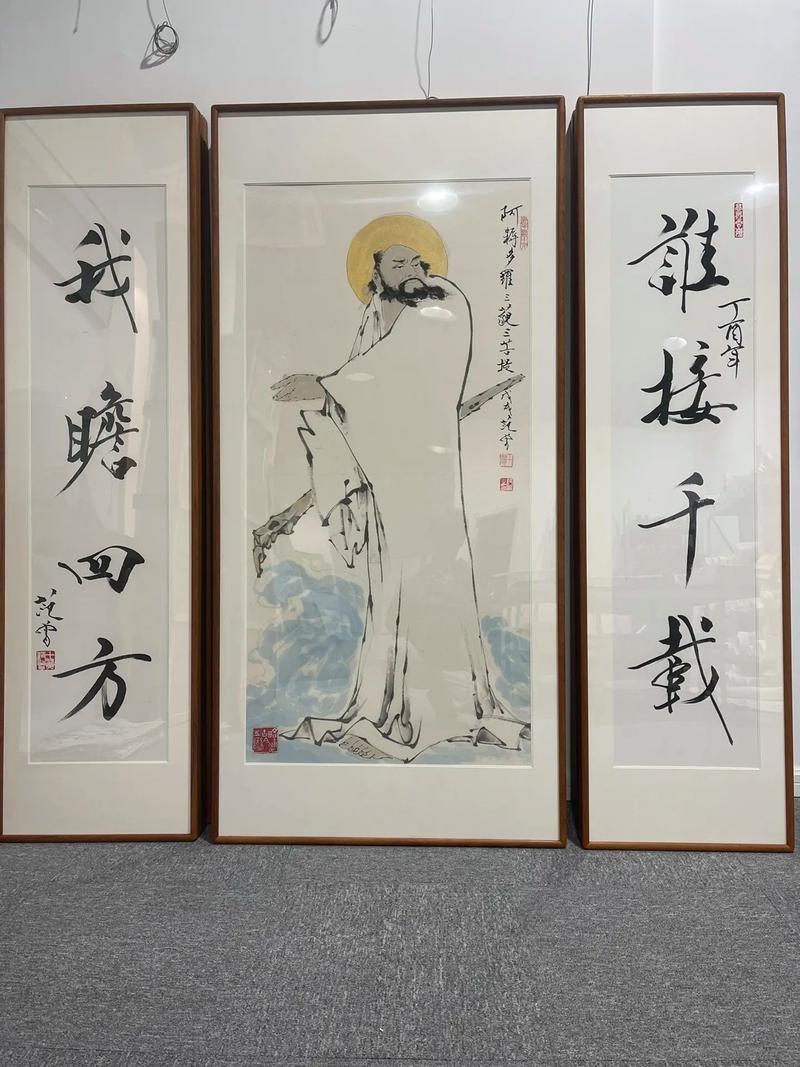 誰接千載
丁酉年
阿耨多羅三藐三菩提 戊戌 范曾
我瞻四方
范曾